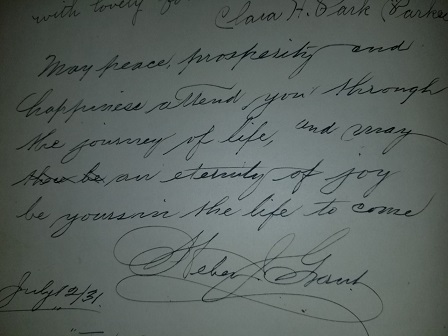 with lovely
Clara H. Park Parker
May peace, prosperity and
happiness attend you through
the journey of life, and may
there be an eternity of joy
be yours in the life to come
Heber J. Grant
July 12/31